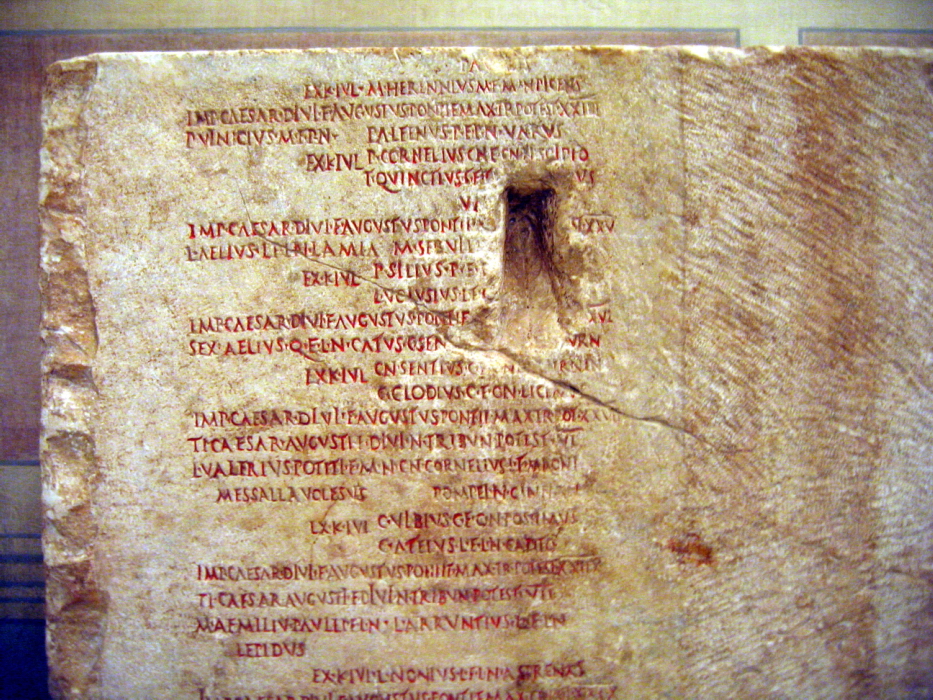 EX·K·IVL· M·HERENNIVS·M·F·M·N·PICENS
IMP·CAESAR·DIVI·F·AVGVSTVS·PONTIF·MAX·TR·POTEST·
P·VINICIVS·M·F·P·N· P·ALFENVS·P·F·P·N·VARVS
EX·K·IVL P·CORNELIVS·CN·F·CN·N·SCIPIO
T·QVINCTIVS· VS
IMP·CAESAR·DIVI·F·AVGVSTVS·PONTIF· XXV
L·AELIVS·L·F·L·N·LAMIA M·SERVIL
EX·K·IVL P·SILIVS·P·F·
L·VOLVSIVS·L·F·
IMP·CAESAR·DIVI·F·AVGVSTVS·PONTIF XVI
SEX·AELIVS·Q·F·L·N·CATVS·C·SEN VRN
EX·K·IVL CN·SENTIVS·C· VRNIN
C·CLODIVS·C·F·CN·LICIN
IMP·CAESAR·DIVI·F·AVGVSTVS·PONTIF·MAX·TR·POT·
TI·CAESAR·AVGVSTI·F·DIVI·N·TRIBVN·POTEST·VI
L·VALERIVS·POTITI·F·M·N·CN·CORNELIVS·L·F·MAGNI
MESSALLA·VOLESVS POMPEI·N·CINNA
EX·K·IVL C·VIBIVS·C·F·C·N·POSTIMVS
C·ATEIVS·L·F·L·N·CAPITO
IMP·CAESAR·DIVI·F·AVGVSTVS·PONTIF·MAX·TR·POTEST·
TI·CAESAR·AVGVSTI·F·DIVI·N·TRIBVN·POTEST·VII
M·AEMILIVS·PAVLLI·F·L·N· L·ARRVNTIVS·L·F·L·N
LEPIDVS
EX·K·IVL·L·NONIVS·L·F·L·N·ASPRENAS
IMP·CAESAR·DIVI·F·AVGVSTVS·PONTIF·MAX